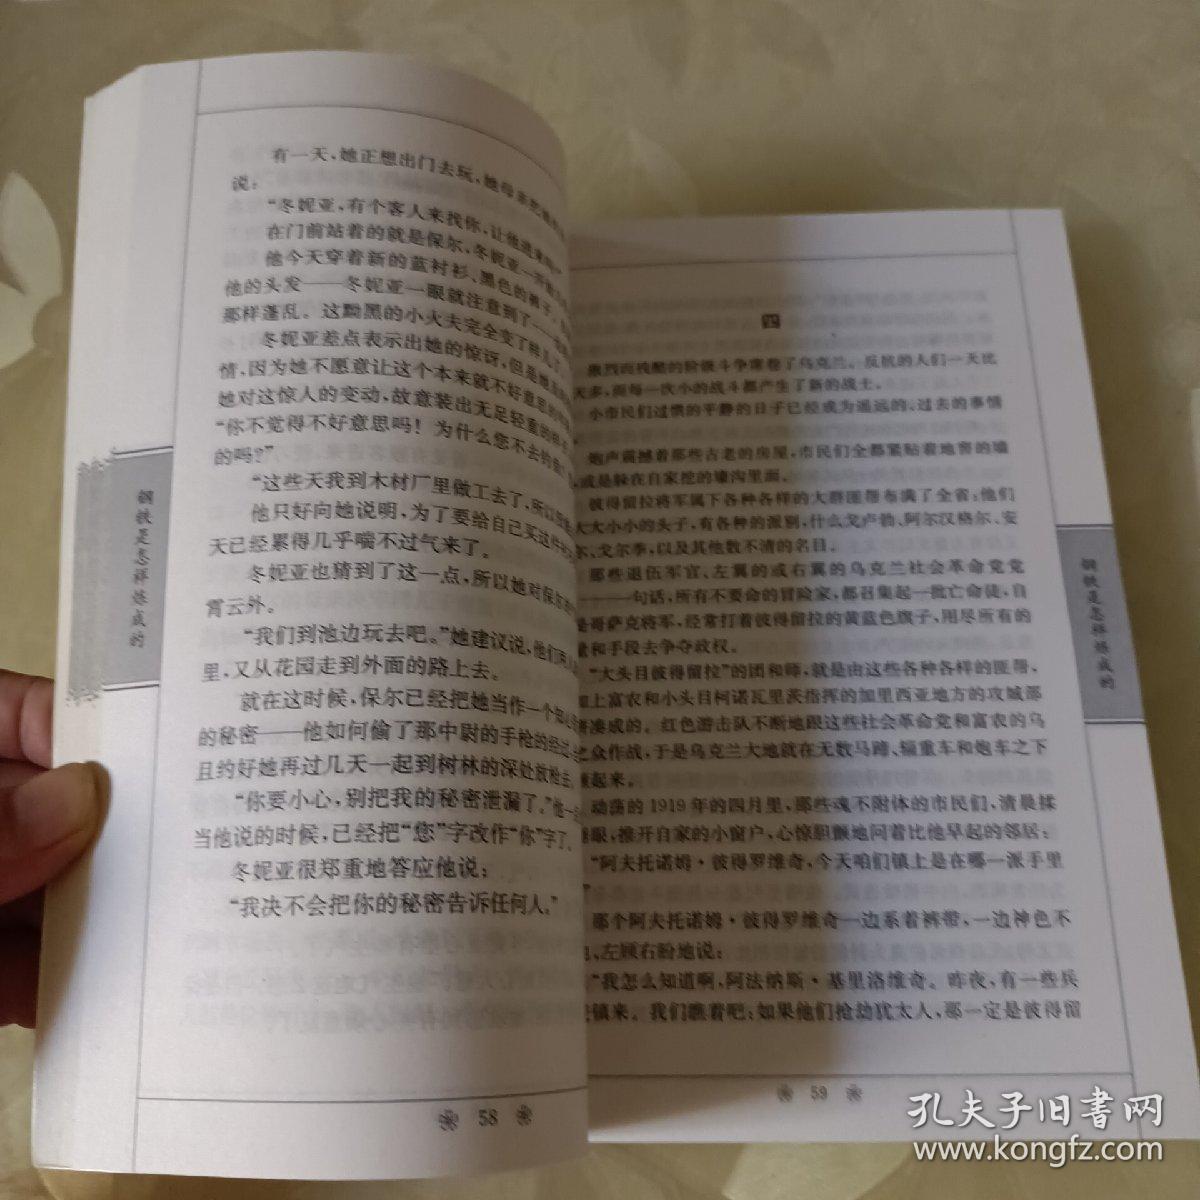 有一天，她正想出门去玩，她母亲把
说：
“冬妮亚，有个客人来找你，让他进来吗？”
在门前站着的就是保尔，冬妮亚一开
他今天穿着新的蓝衬衫、黑色的裤子，
他的头发——冬妮亚一眼就注意到了
那样蓬乱。这黝黑的小火夫完全变了样儿了。
冬妮亚差点表示出她的惊讶，但是她
情，因为她不愿意让这个本来就不好意思的
她对这惊人的变动，故意装出无足轻重的样
“你不觉得不好意思吗！为什么您不去钓鱼
的吗？”
“这些天我到木材厂里做工去了，所以
他只好向她说明，为了要给自己买这件
天已经累得几乎喘不过气来了。
冬妮亚也猜到了这一点，所以她对保尔
霄云外。
“我们到池边玩去吧。”她建议说，他们两人
里，又从花园走到外面的路上去。
就在这时候，保尔已经把她当作一个知心
的秘密——他如何偷了那中尉的手枪的经过
且约好她再过几天一起到树林的深处放枪去。
“你要小心，别把我的秘密泄漏了。”他一
当他说的时候，已经把“您”字改作“你”字了。
冬妮亚很郑重地答应他说：
“我决不会把你的秘密告诉任何人。”
钢铁是怎样炼成的
58
四
激烈而残酷的阶级斗争席卷了乌克兰。反抗的人们一天比
天多，而每一次小的战斗都产生了新的战士。
小市民们过惯的平静的日子已经成为遥远的、过去的事情
炮声震撼着那些古老的房屋，市民们全都紧贴着地窖的墙
或是躲在自家挖的壕沟里面。
彼得留拉将军属下各种各样的大群匪帮布满了全省：他们
大大小小的头子，有各种的派别，什么戈卢勃、阿尔汉格尔、安
尔、戈尔季，以及其他数不清的名目。
那些退伍军官、左翼的或右翼的乌克兰社会革命党党
———一句话，所有不要命的冒险家，都召集起一批亡命徒，自
是哥萨克将军，经常打着彼得留拉的黄蓝色旗子，用尽所有的
量和手段去争夺政权。
“大头目彼得留拉”的团和师，就是由这些各种各样的匪帮，
加上富农和小头目柯诺瓦里茨指挥的加里西亚地方的攻城部
所凑成的。红色游击队不断地跟这些社会革命党和富农的乌
之众作战，于是乌克兰大地就在无数马蹄、辎重车和炮车之下
起来。
动荡的1919年的四月里，那些魂不附体的市民们，清晨揉
眼，推开自家的小窗户，心惊胆颤地问着比他早起的邻居：
“阿夫托诺姆·彼得罗维奇，今天咱们镇上是在哪一派手里
”
那个阿夫托诺姆·彼得罗维奇一边系着裤带，一边神色不
，左顾右盼地说：
“我怎么知道啊，阿法纳斯·基里洛维奇。昨夜，有一些兵
镇来。我们瞧着吧：如果他们抢劫犹太人，那一定是彼得留
钢铁是怎样炼成的
59
孔夫子旧书网
www.kongfz.com